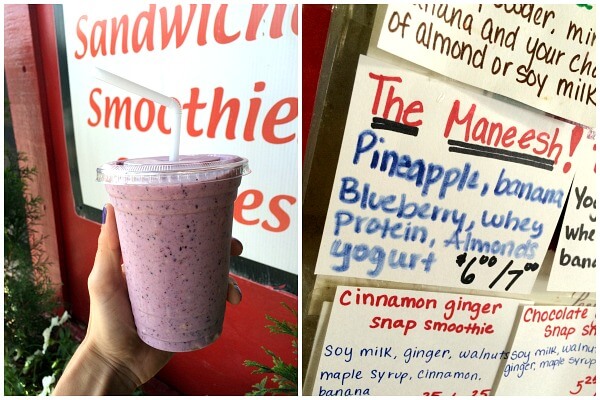 Sandwich
Smoothie
es
banana and your
of almond or soy milk
The Maneesh!
Pineapple, banana
Blueberry, whey
Protein, Almonds
yogurt $6.00/7.00
Cinnamon ginger
snap smoothie
Soy milk, ginger, walnuts
maple syrup, cinnamon,
banana
Chocolate
snap
Soy milk, walnu
ginger, maple
5.25
Yo
whe
bana